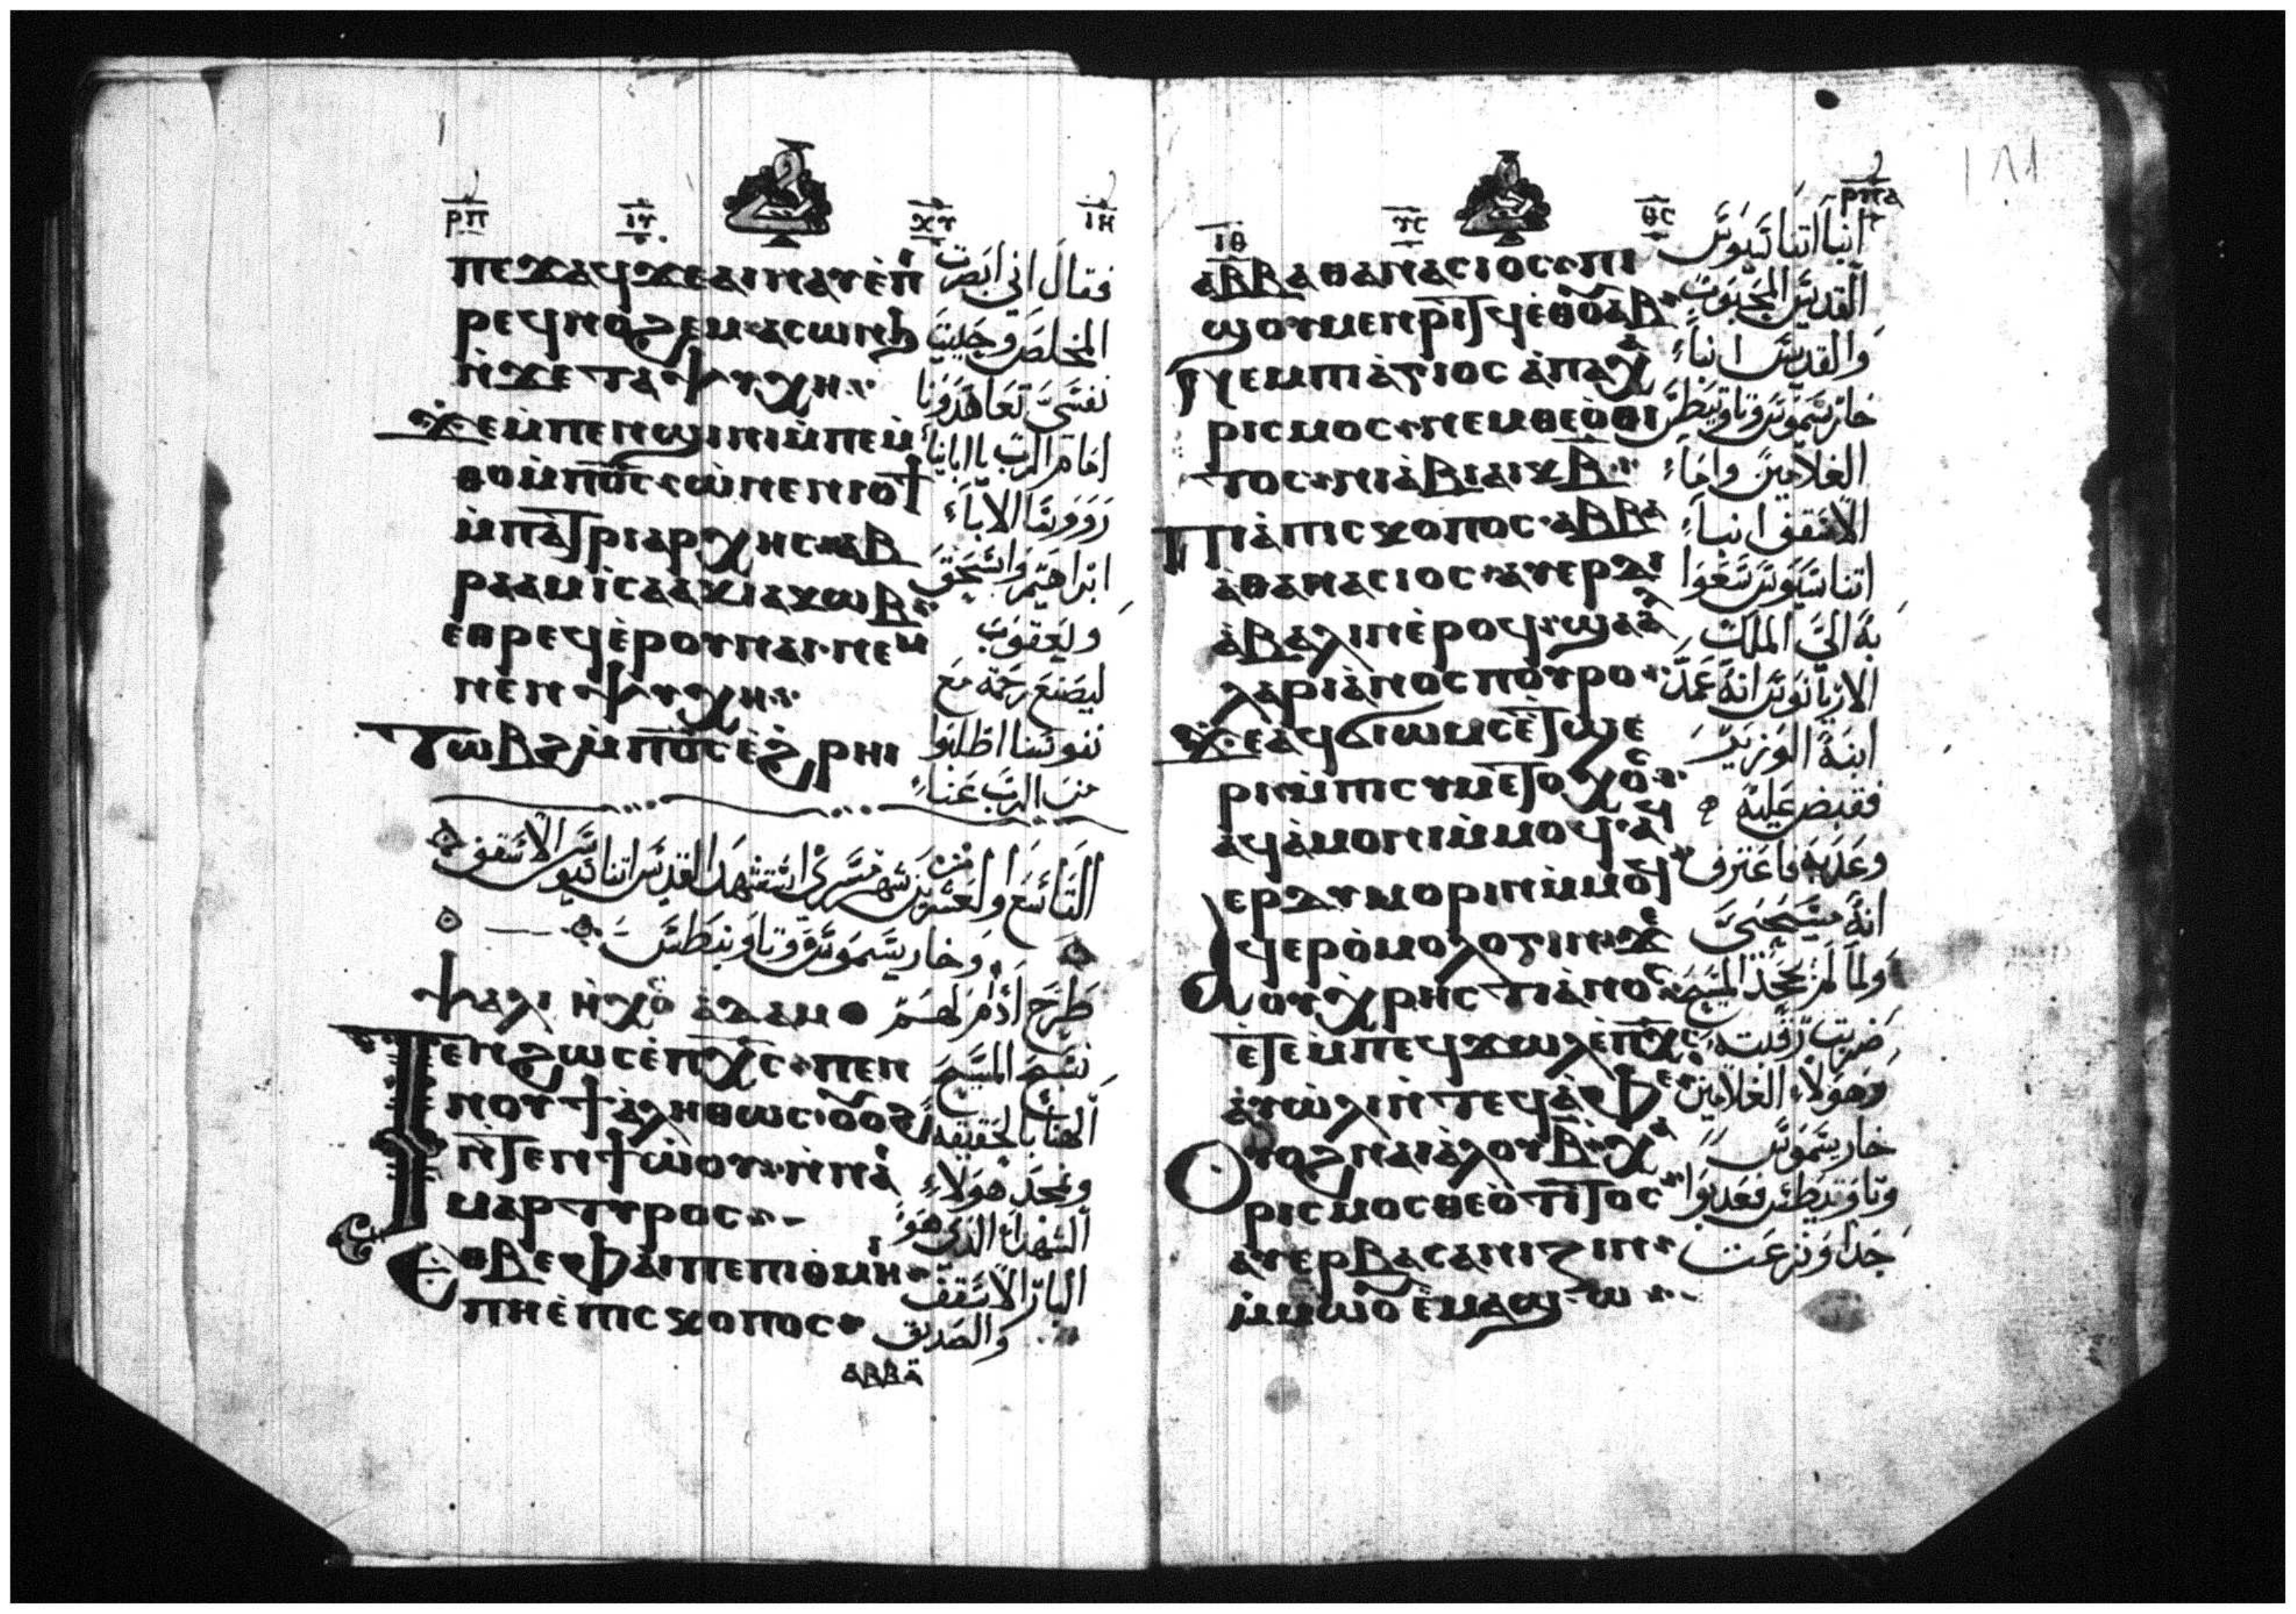 ⲣⲡ ⲓⲩ ⲭⲩ ⲓⲏ
ⲡⲉϫⲁϥϫⲉⲁⲓⲛⲁⲩⲉ̇ⲡⲓ
فقال اني ابصرت
ⲣⲉϥⲛⲟϩⲉⲙ·ⲁⲥⲱⲛϧ
المخلص وحييت
ⲛ̇ϫⲉⲧⲁⲯⲩⲭⲏ
نفسي تعاهدونا
ϫⲉⲙ̇ⲡⲉⲛϣⲓⲛⲓⲙ̇ⲡⲉⲙ̇
امام الرب يا ابانا
ⲑⲟⲙ̇ⲡⲟ̅ⲥ̅·ⲱ̇ⲛⲉⲛⲓⲟϯ
الاباء
ⲙ̇ⲡⲁ̇ⲧⲣⲓⲁⲣⲭⲏⲥ·ⲁⲃ
ابراهيم واسحق
ⲣⲁⲁⲙⲓ̇ⲥⲁⲁⲕⲓⲁⲕⲱⲃ
ويعقوب
ⲉⲑⲣⲉϥⲉ̇ⲣⲟⲩⲛⲁⲓ·ⲛⲉⲙ
ليصنع رحمة مع
ⲛⲉⲛⲯⲩⲭⲏ
نفوسنا اطلبوا
ⲧⲱⲃϩⲙ̇ⲡⲟ̅ⲥ̅ⲉ̇ϩⲣⲏⲓ
من الرب عنا
التاسع والعشرين من شهر مسري استشهد القديس اتناسيوس الاسقف
وخاريسموس وتاوبنطس
ⲯⲁⲗⲓ ⲛ̇ⲭⲟ̅ ⲁ̇ⲇⲁⲙ طرح ادام لهم
ⲧⲉⲛϩⲱⲥⲉ̇ⲡⲭ̅ⲥ̅·ⲡⲉⲛ
نسبح المسيح
ⲛⲟⲩϯⲁ̇ⲗⲏⲑⲱⲥ·ⲟⲩⲟϩ
الهنا بالحقيقه
ⲛ̇ⲧⲉⲛϯⲱ̇ⲟⲩ·ⲛ̇ⲛⲁⲓ
ونمجد هولاء
ⲙⲁⲣⲧⲩⲣⲟⲥ
الشهدا الذي هو
ⲉⲑⲃⲉⲫⲁⲓⲡⲉⲡⲓⲑⲙⲏⲓ
البار الاسقف
ⲡⲏⲉ̇ⲡⲓⲥⲕⲟⲡⲟⲥ
والصديق
ⲁⲃⲃⲁ
ⲓⲑ ⲩⲥ ⲑⲥ ⲣⲡⲁ
١٨١
ⲁⲃⲃⲁⲑⲁⲛⲁⲥⲓⲟⲥ·ⲡⲓ
انبا اتناسيوس
ϣⲟⲩⲙⲉⲛⲣⲓⲧϥⲉ̇ⲑⲟⲩⲁⲃ
القديس المحبوب
ⲛⲉⲙⲡⲓⲁ̇ⲅⲓⲟⲥ ⲁ̇ⲡⲁⲭⲁ
والقديس انباء
ⲣⲓⲥⲙⲟⲥ·ⲛⲉⲙⲑⲉⲟ̇ⲑⲓ
خاريسموس وتاوتيطس
ⲧⲟⲥ·ⲛⲓⲁ̇ⲃⲓⲁⲓⲕⲃ̅
الغلامين
ⲡⲓⲁ̇ⲡⲓⲥⲕⲟⲡⲟⲥ·ⲁⲃⲃⲁ
الاسقف انباء
ⲁ̇ⲑⲁⲛⲁⲥⲓⲟⲥ·ⲁⲩⲉⲣⲇⲓ
اتناسيوس سعوا
ⲁ̇ⲃⲁⲗⲓⲛⲉ̇ⲣⲟϥ·ϣⲁⲁ
به الي الملك
ⲗⲁⲣⲓⲁ̇ⲛⲟⲥⲡⲟ̇ⲩⲣⲟ
الاريانوس انه عمد
ϫⲉⲁϥϭⲓⲱⲙⲥⲉ̇ⲧϣⲉ
ابنة الوزير
ⲣⲓⲙ̇ⲡⲓⲥⲩⲛⲉ̇ⲧⲟⲭⲟⲥ
فقبض عليه
ⲁϥⲁ̇ⲙⲟⲛⲓⲙ̇ⲙⲟϥ·ⲁϥ
وعذبه فاعترف
ⲉⲣⲇⲩⲙⲟⲣⲓⲛⲙ̇ⲙⲟϥ
انه مسيحي
ϥⲉⲣⲟ̇ⲙⲟⲗⲟⲅⲓⲛ·ϫⲉ
ولما لم يجحد المسيح
ⲟⲩⲭⲣⲏⲥⲧⲓⲁ̇ⲛⲟⲥ
ضربت رقبته
ⲉ̇ⲧⲉⲙ̇ⲡⲉϥϫⲱⲗⲉ̇ⲡⲭ̅ⲥ̅
وهولاء الغلامين
ⲁ̇ⲩⲱ̇ⲗⲓⲛ̇ⲧⲉϥⲁ̇ⲫⲉ
خاريسموس
ⲟⲩⲟϩⲛⲁⲓⲁ̇ⲗⲟⲩⲃ̅·ⲭⲁ
وتاوتيطس فعذبوا
ⲣⲓⲥⲙⲟⲥⲑⲉⲟ̇ⲧⲓⲧⲟⲥ
جدا ونزعت
ⲁⲩⲉⲣⲃⲁⲥⲁⲛⲓⲍⲓⲛ
ⲙ̇ⲙⲱⲟⲩⲉ̇ⲙⲁϣⲱ